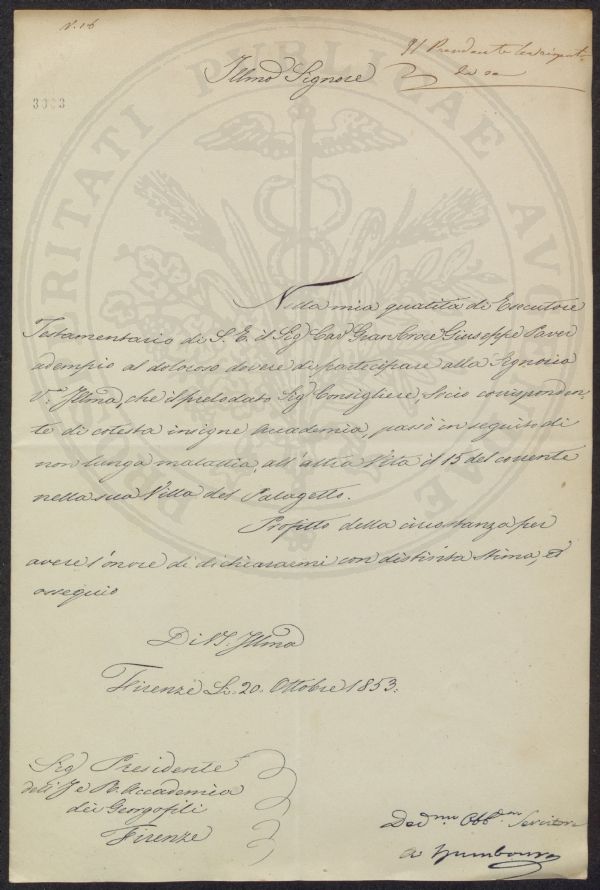 N. 16
Il Presidente
Illmo Signore
3303
PROSPERITATI PUBLICAE AUGENDAE
Nella mia qualità di Esecutore
Testamentario di S. E. il Sig Cav Gran Croce Giuseppe Paver
adempio al doloroso dovere di participare alla Signoria
V. Illma, che il prelodato Sig Consigliere, Socio corrisponden-
te di cotesta insigne Accademia, passò in seguito di
non lunga malattia, all'altra Vita il 15 del corrente
nella sua Villa del Palagetto.
Profitto della circostanza per
avere l'onore di dichiararmi con distinta Stima, ed
ossequio
Di V. S. Illma
Firenze Li 20. Ottobre 1853.
Sig Presidente
dell'I e R. Accademia
dei Georgofili
Firenze
Dedmo Obbmo Servitore